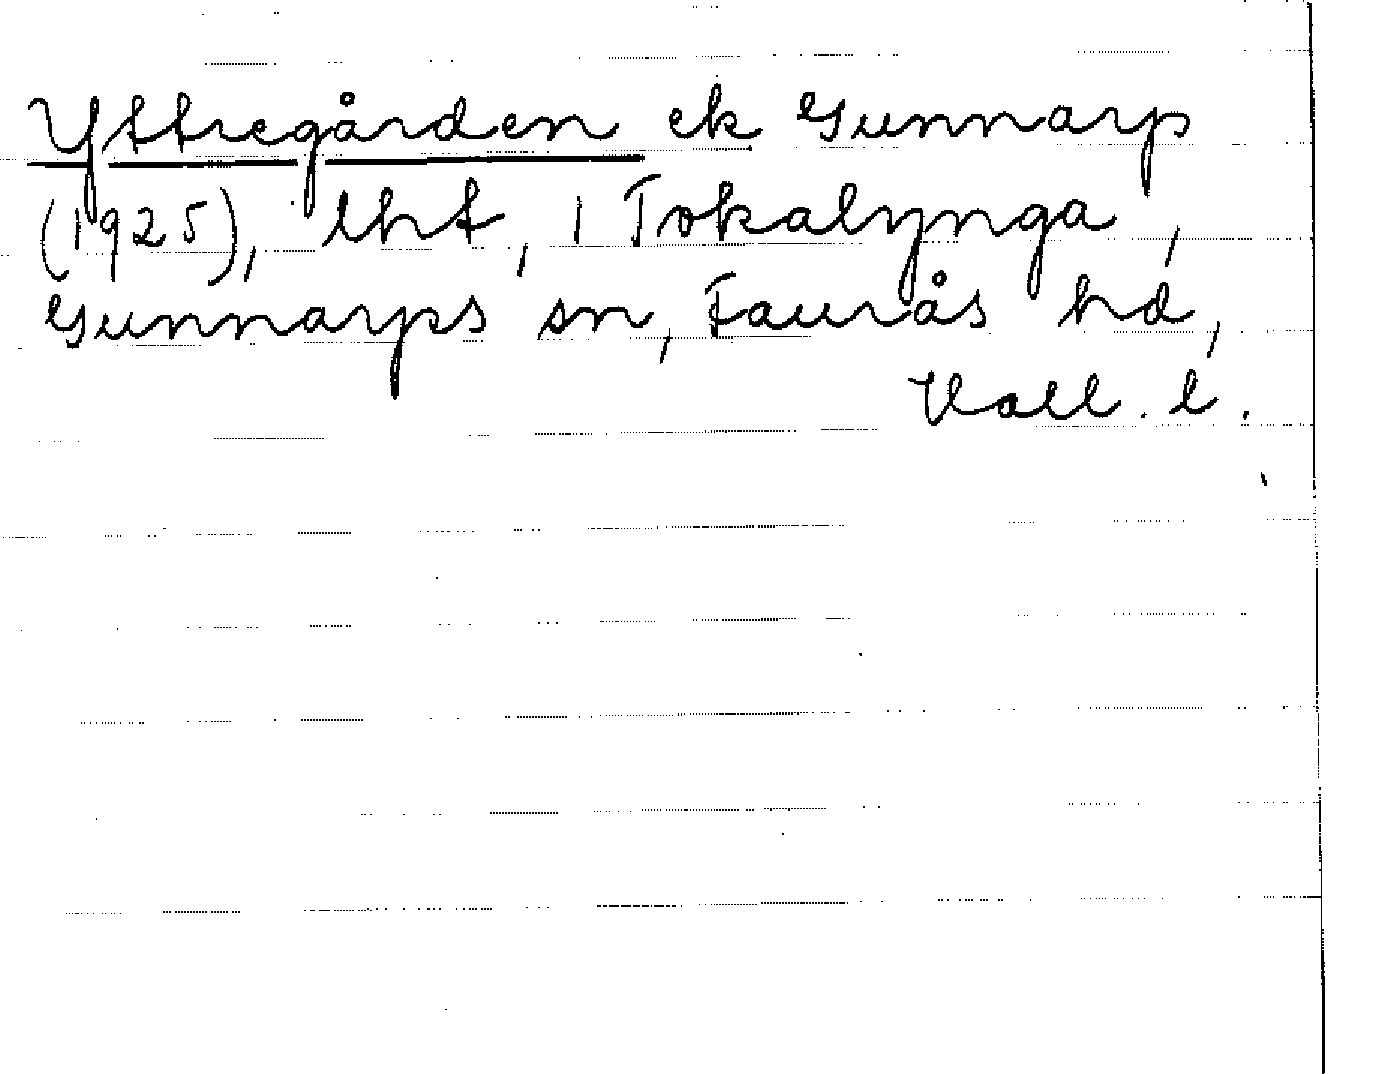 Yttregården ek Gunnarp
(1925), lht, i Tokalynga,
Gunnarps sn, Faurås hd,
Hall. l.